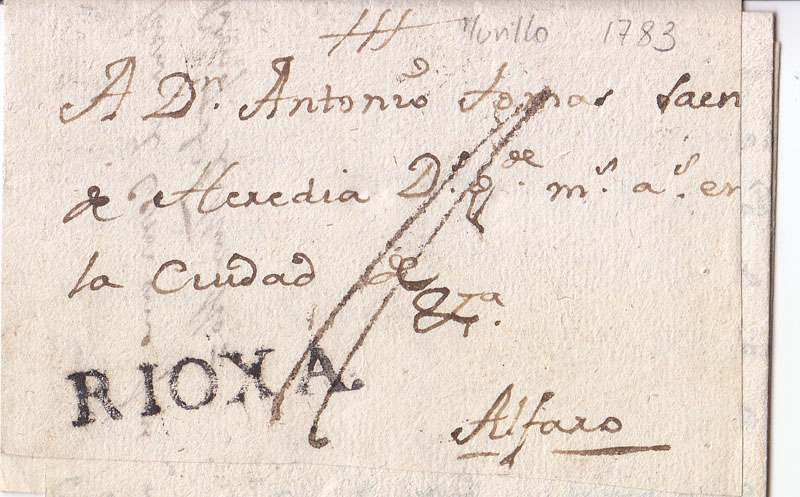 Murillo 1783
A Dn. Antonio Tomas Saen
de Heredia Ds. gde. ms. as. en
la Ciudad de
&ra.
RIOXA.
Alfaro